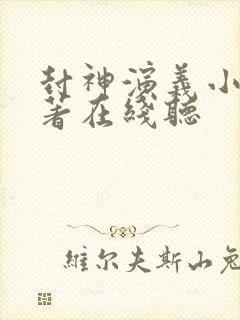 封神演義小
著在綫聽
維尔夫斯山兔